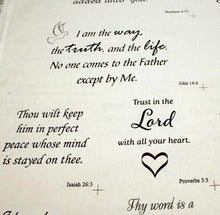 added unto you.
Matthew 6:33
I am the way,
the truth, and the life.
No one comes to the Father
except by Me.
John 14:6
Thou wilt keep
him in perfect
peace whose mind
is stayed on thee.
Isaiah 26:3
Trust in the
Lord
with all your heart.
Proverbs 3:5
Thy word is a